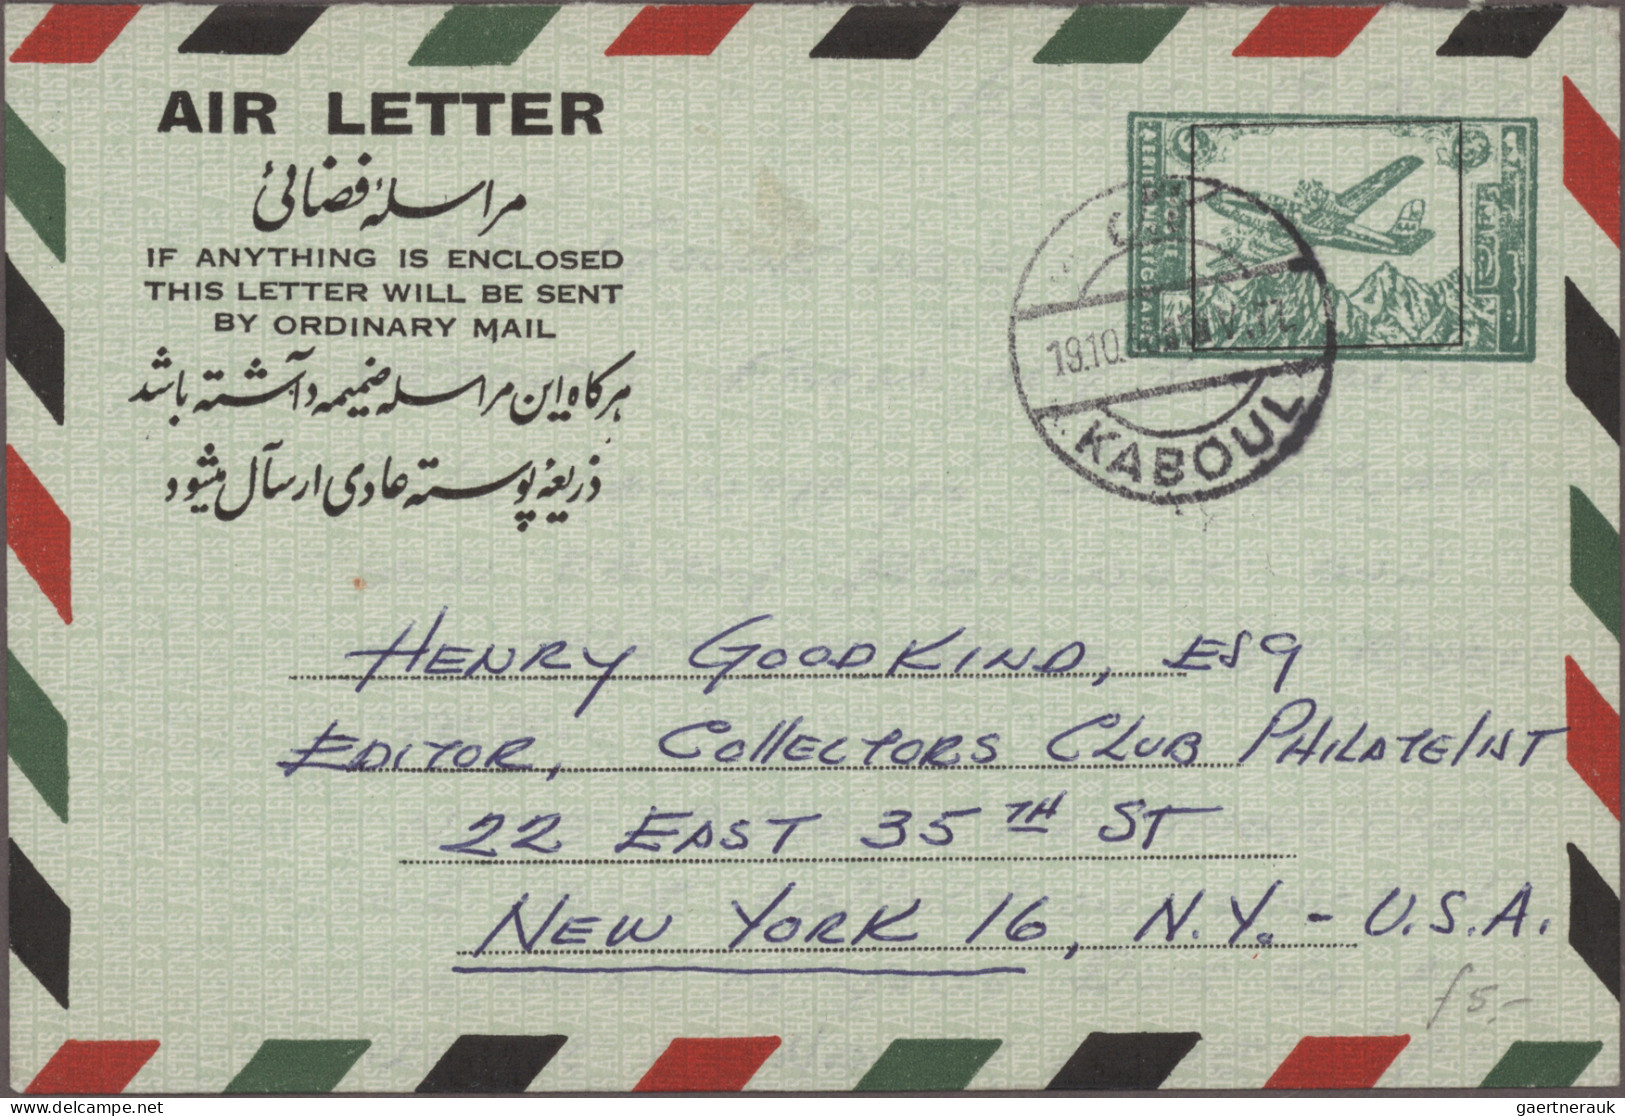 AIR LETTER
مراسلهٔ فضائی
IF ANYTHING IS ENCLOSED
THIS LETTER WILL BE SENT
BY ORDINARY MAIL
هرگاه این مراسله ضمیمه داشته باشد
ذریعهٔ پوسته عادی ارسال میشود
19.10.
KABOUL
HENRY GOODKIND, ESQ
EDITOR, COLLECTORS CLUB PHILATELIST
22 EAST 35TH ST
NEW YORK 16, N.Y. - U.S.A.
f 5,-
www.delcampe.net
gaertnerauk